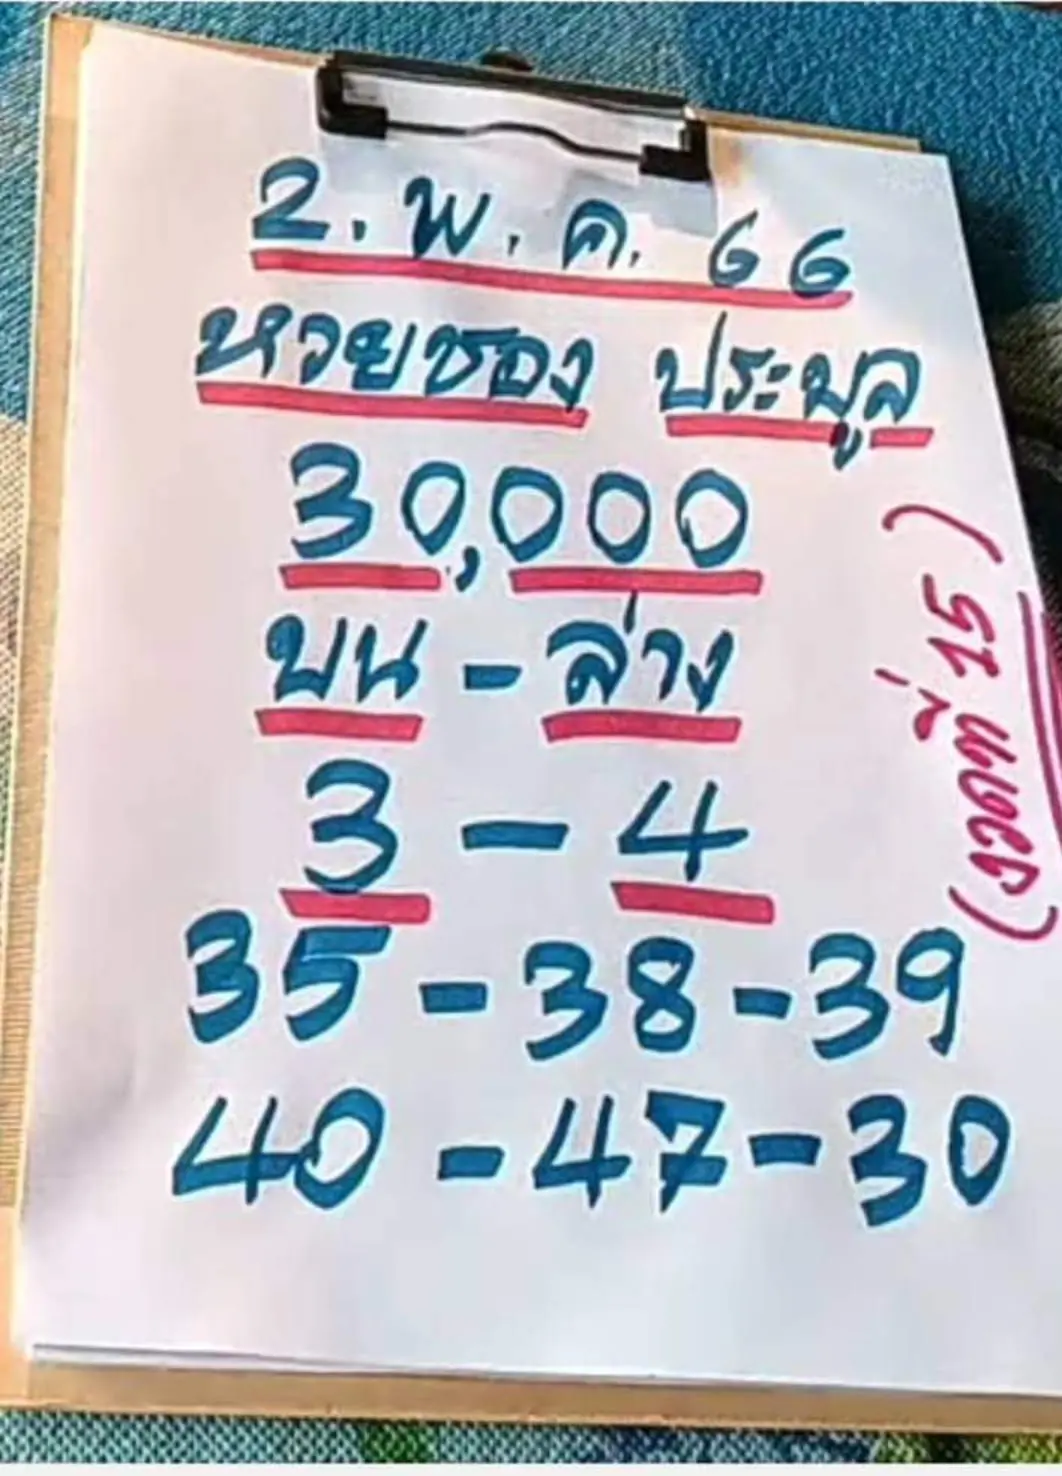 2. พ. ค. 66
หวยซอง ประมูล
30,000
บน - ล่าง
3 - 4
35 - 38 - 39
40 - 47 - 30